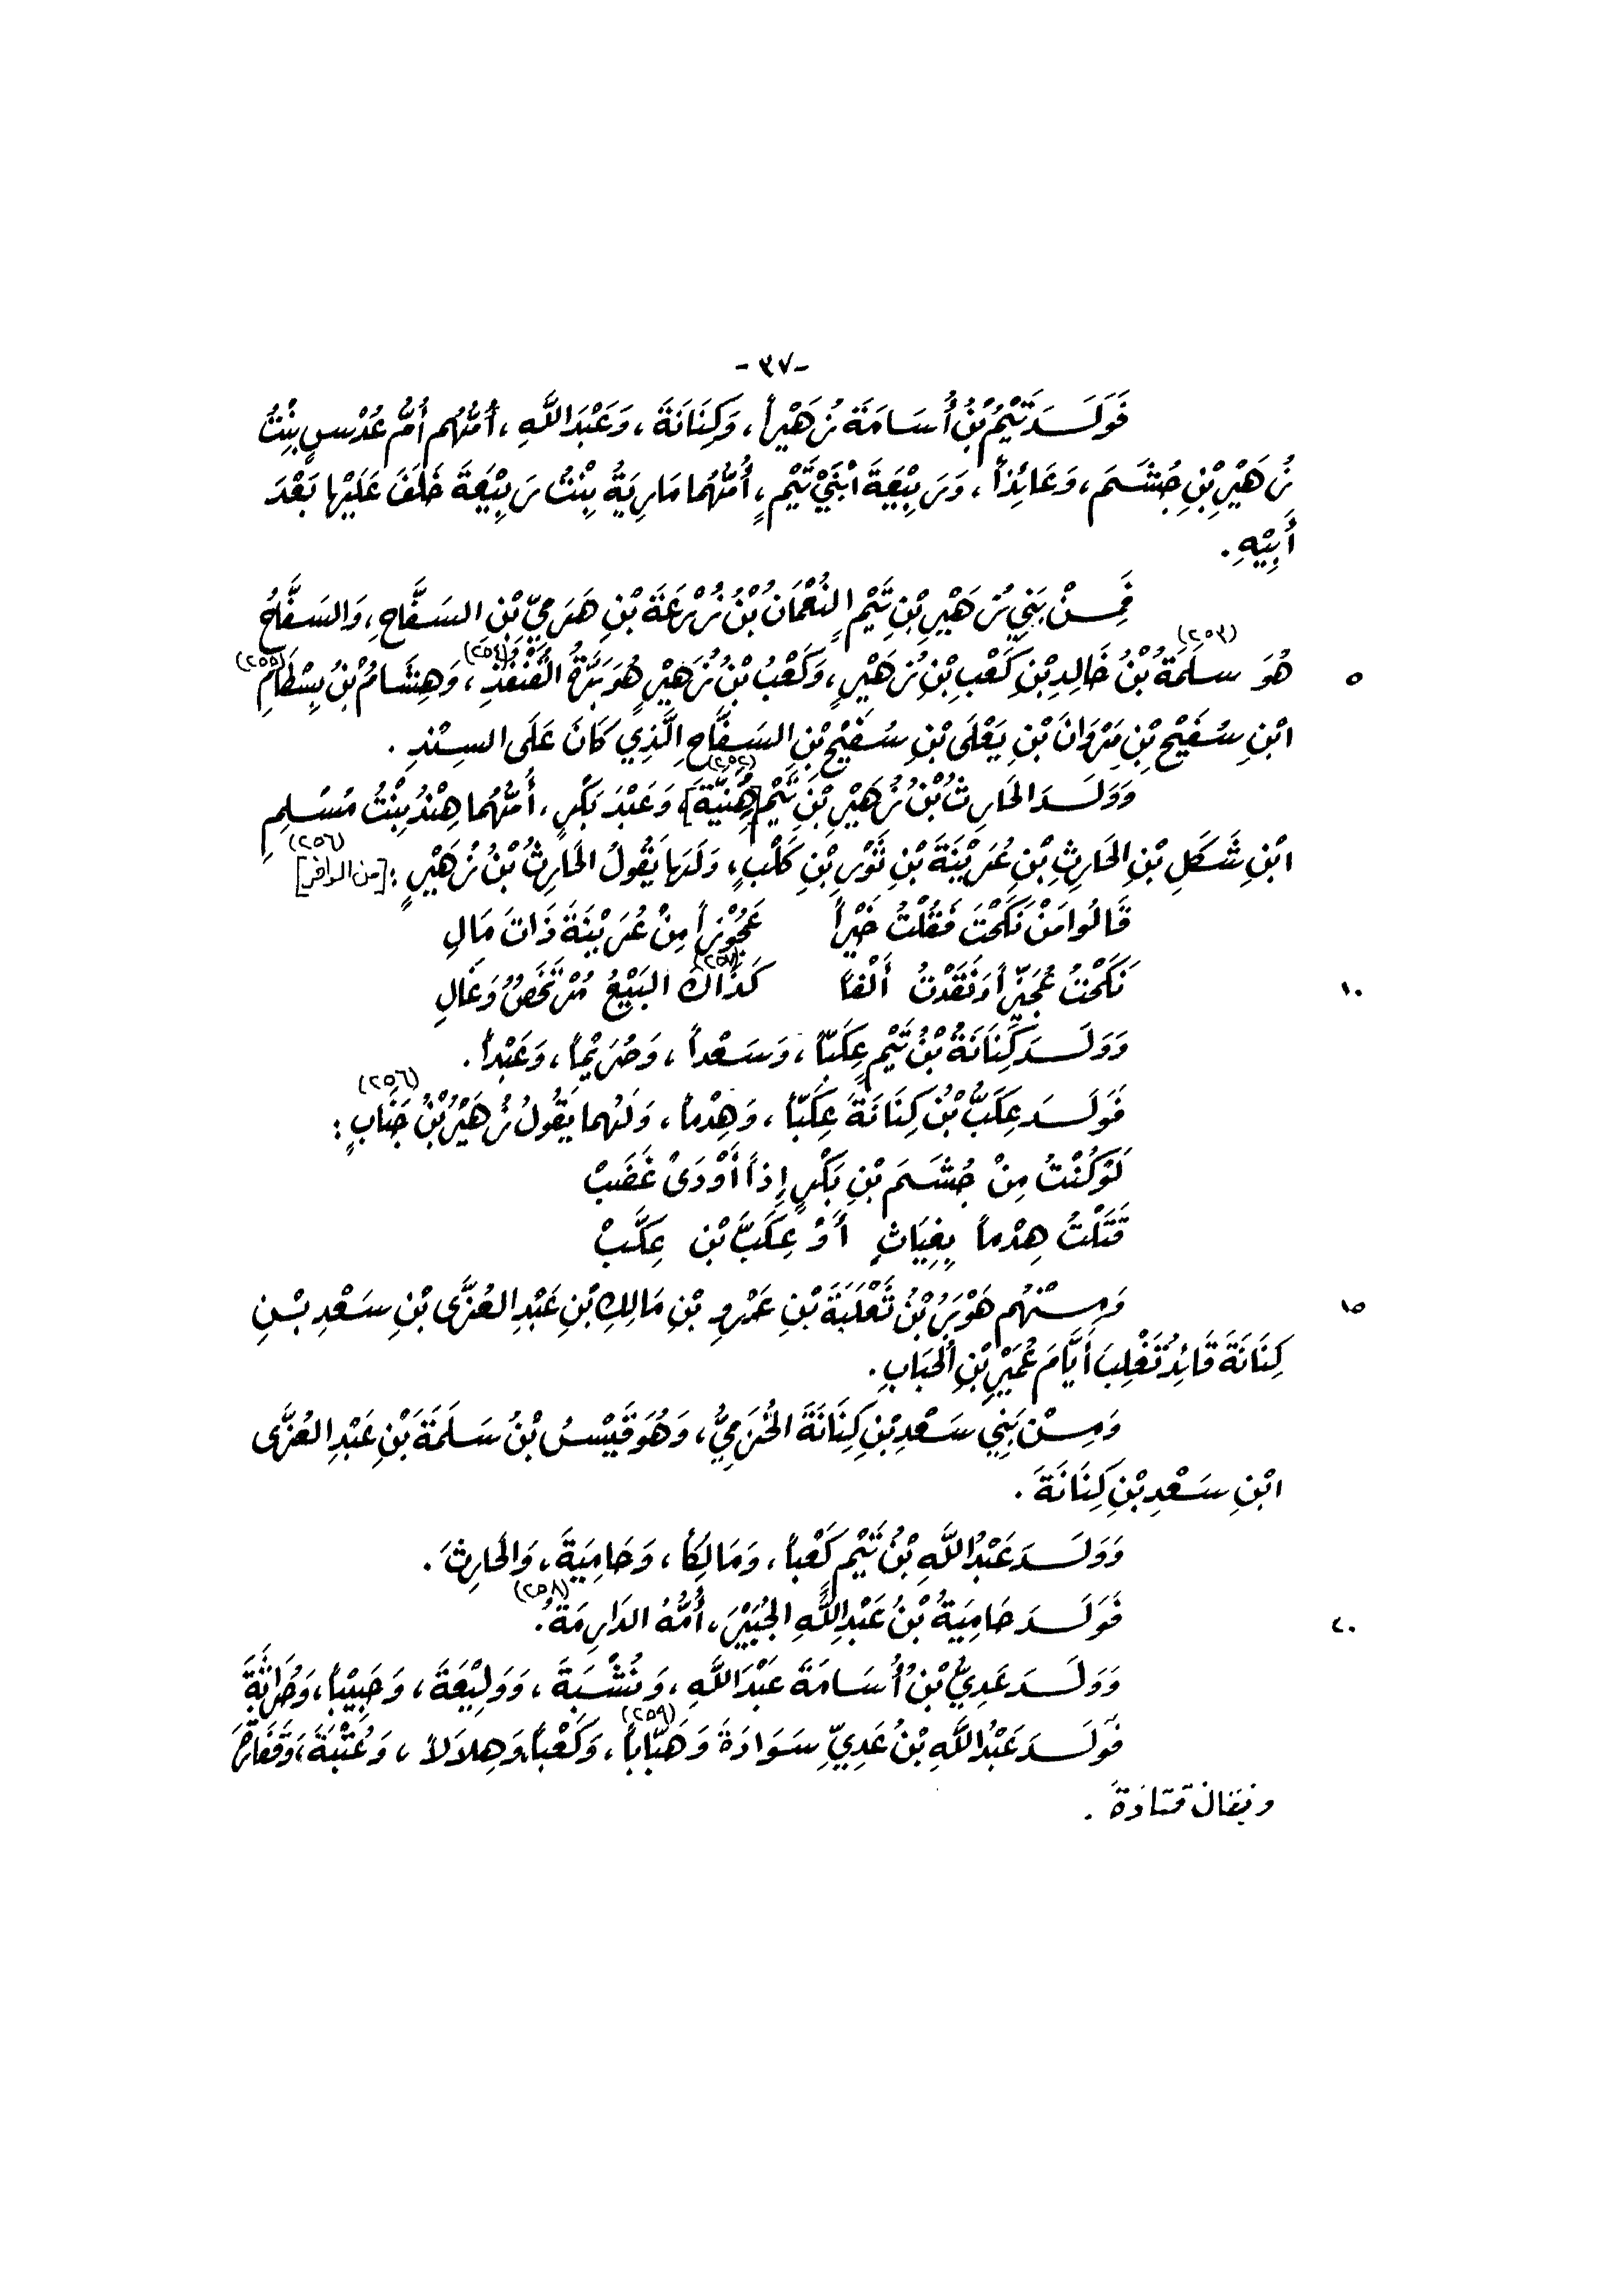 -٣٧-
فَوَلَـدَ تَيْمُ بْنُ أُسَامَةَ زُهَيْراً، وَكِنَانَةَ، وَعَبْدَ اللَّهِ، أُمُّهُم أُمُّ عُدْسٍ بِنْتُ
زُهَيْرِ بْنِ جُشَـمَ، وَعَائِذاً، وَرَبِيْعَةَ ابْنَيْ تَيْمٍ، أُمُّهُما مَارِيَةُ بِنْتُ رَبِيْعَةَ خَلَفَ عَلَيْها بَعْدَ
أَبِيْهِ.
فَمِـنْ بَنِي زُهَيْرِ بْنِ تَيْمٍ النُعْمَانُ بْنُ زُرْعَةَ بْنِ هَرَمِيِّ بْنِ السَفَّاحِ، وَالسَفَّاحُ
٥ هُوَ سَلَمَةُ (٢٥٣) بْنُ خَالِدِ بْنِ كَعْبِ بْنِ زُهَيْرٍ، وَكَعْبُ بْنُ زُهَيْرٍ هُوَ بَرَّةُ القُنْفُذِ (٢٥٤)، وَهِشَامُ بْنُ بِسْطَامِ (٢٥٥)
ابْنِ سُفَيْحِ بْنِ مَرْوَانَ بْنِ يَعْلَى بْنِ سُفَيْحِ بْنِ السَفَّاحِ الَّذِي كَانَ عَلَى السِـنْدِ.
وَوَلَـدَ الحَارِثُ بْنُ زُهَيْرِ بْنِ تَيْمٍ [هُنَيَّةَ]، وَعَبْدَ بَكْرٍ، أُمُّهُما هِنْدُ بِنْتُ مُسْـلِمِ
ابْنِ شَكَلِ بْنِ الحَارِثِ بْنِ عُرَيْنَةَ بْنِ ثَوْرِ بْنِ كَلْبٍ، وَلَها يَقُولُ الحَارِثُ بْنُ زُهَيْرٍ: (٢٥٦) [من الوافر]
قَالُوا مَنْ نَكَحْتَ فَقُلْتُ خَيْراً عَجُوْزاً مِنْ عُرَيْنَةَ ذَاتَ مَالِ
١٠ نَكَحْتُ عُجَيِّزاً وَنَقَدْتُ أَلْفاً كَذَاكَ (٢٥٧) البَيْعُ مُرْتَخَصٌ وَغَالِ
وَوَلَـدَ كِنَانَةُ بْنُ تَيْمٍ عِكَبّاً، وَسَعْداً، وَصُرَيْماً، وَعَبْداً.
فَوَلَـدَ عِكَبُّ بْنُ كِنَانَةَ عِكَبّاً، وَهِدْماً، وَلَهُما يَقُولُ زُهَيْرُ بْنُ جَنَابٍ (٢٥٦):
لَوْ كُنْتُ مِنْ جُشَـمَ بْنِ بَكْرٍ إِذاً أَوْدَىْ غَضَبْ
قَتَلْتُ هِدْماً بِغِيَاثٍ أَوْ عِكَبَّ بْنِ عِكَبْ
١٥ وَمِـنْهُم هَوْبَرُ بْنُ ثَعْلَبَةَ بْنِ عَمْرِو بْنِ مَالِكِ بْنِ عَبْدِ العُزَّى بْنِ سَعْدِ بْـنِ
كِنَانَةَ قَائِدُ تَغْلِبَ أَيَّامَ عُمَيْرِ بْنِ الحُبَابِ.
وَمِـنْ بَنِي سَعْدِ بْنِ كِنَانَةَ الحُرَمِيُّ، وَهُوَ قَيْسُ بْنُ سَلَمَةَ بْنِ عَبْدِ العُزَّى
ابْنِ سَعْدِ بْنِ كِنَانَةَ.
وَوَلَـدَ عَبْدُ اللَّهِ بْنُ تَيْمٍ كَعْباً، وَمَالِكاً، وَحَامِيَةَ، وَالحَارِثَ.
٢٠ فَوَلَـدَ حَامِيَةُ بْنُ عَبْدِ اللَّهِ الجُبَيْرَ، أُمُّهُ الدَارِمَةُ (٢٥٨).
وَوَلَـدَ عَدِيُّ بْنُ أُسَامَةَ عَبْدَ اللَّهِ، وَنُشْبَةَ، وَوَلِيْعَةَ، وَحَبِيْباً،
فَوَلَـدَ عَبْدُ اللَّهِ بْنُ عَدِيِّ سَوَادَةَ وَهَبَّاباً (٢٥٩)، وَكَعْباً، وَهِلَالاً، وَعُتْبَةَ،
ويقال قتادةَ.